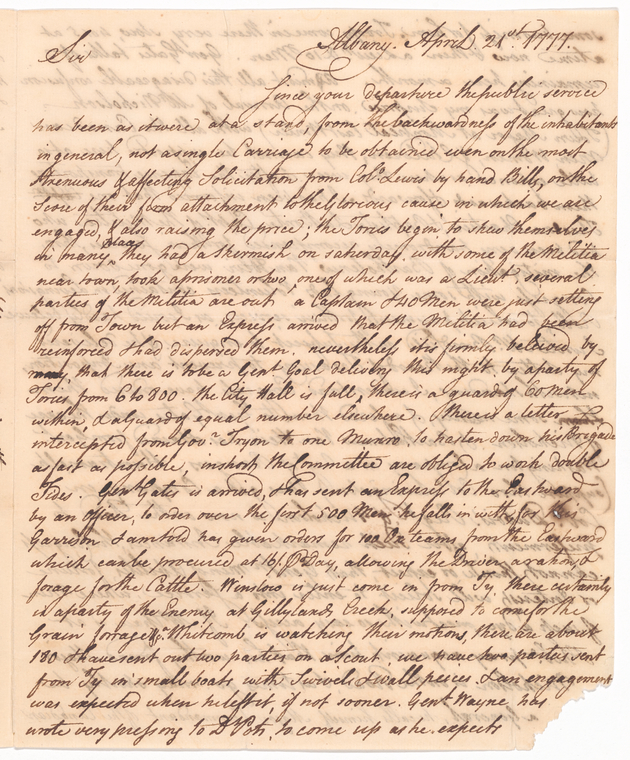 Albany. April 21st. 1777.
Sir
Since your departure the public service
has been as it were at a stand, from the backwardness of the inhabitants
in general, not a single Carriage to be obtained even on the most
strenuous & affecting Solicitation from Colo. Lewis by hand Bills, on the
Score of their firm attachment to the Glorious cause in which we are
engaged, & also raising the price; the Tories begin to shew themselves
in many places they had a skirmish on saturday with some of the Militia
near town, took a prisoner or two, one of which was a Lieut, several
parties of the Militia are out a Captain & 40 Men were just setting
off from Town but an Express arrived that the Militia had been
reinforced & had dispersed them. nevertheless it is firmly believed by
many, that there is to be a Genl. Goal delivery this night, by a party of
Tories from 6 to 800. the City Hall is full, there is a guard of 60 Men
within, & a Guard of equal number elsewhere. (there is a letter
intercepted from Govr. Tryon to one Munro, to hasten down his Brigade
as fast as possible, in short the Committee are obliged to work double
Tides. Genl. Gates is arrived, & has sent an Express to the Eastward
by an Officer, to order over the first 500 Men he falls in with, for this
Garrison & am told has given orders for 100 Ox teams from the Eastward
which can be procured at 16/ P Day, allowing the Driver a ration &
forage for the Cattle. Winslow is just come in from Ty, there certainly
is a party of the Enemy at Gillylands Creek, supposed to come for the
Grain forage &c. Whitcomb is watching their motions, there are about
180 & have sent out two parties on a Scout, we have two parties sent
from Ty in small boats with Swivels & wall peices & an engagement
was expected when he left it, if not sooner. Genl. Wayne has
wrote very pressing to D. Pots, to come up as he expects